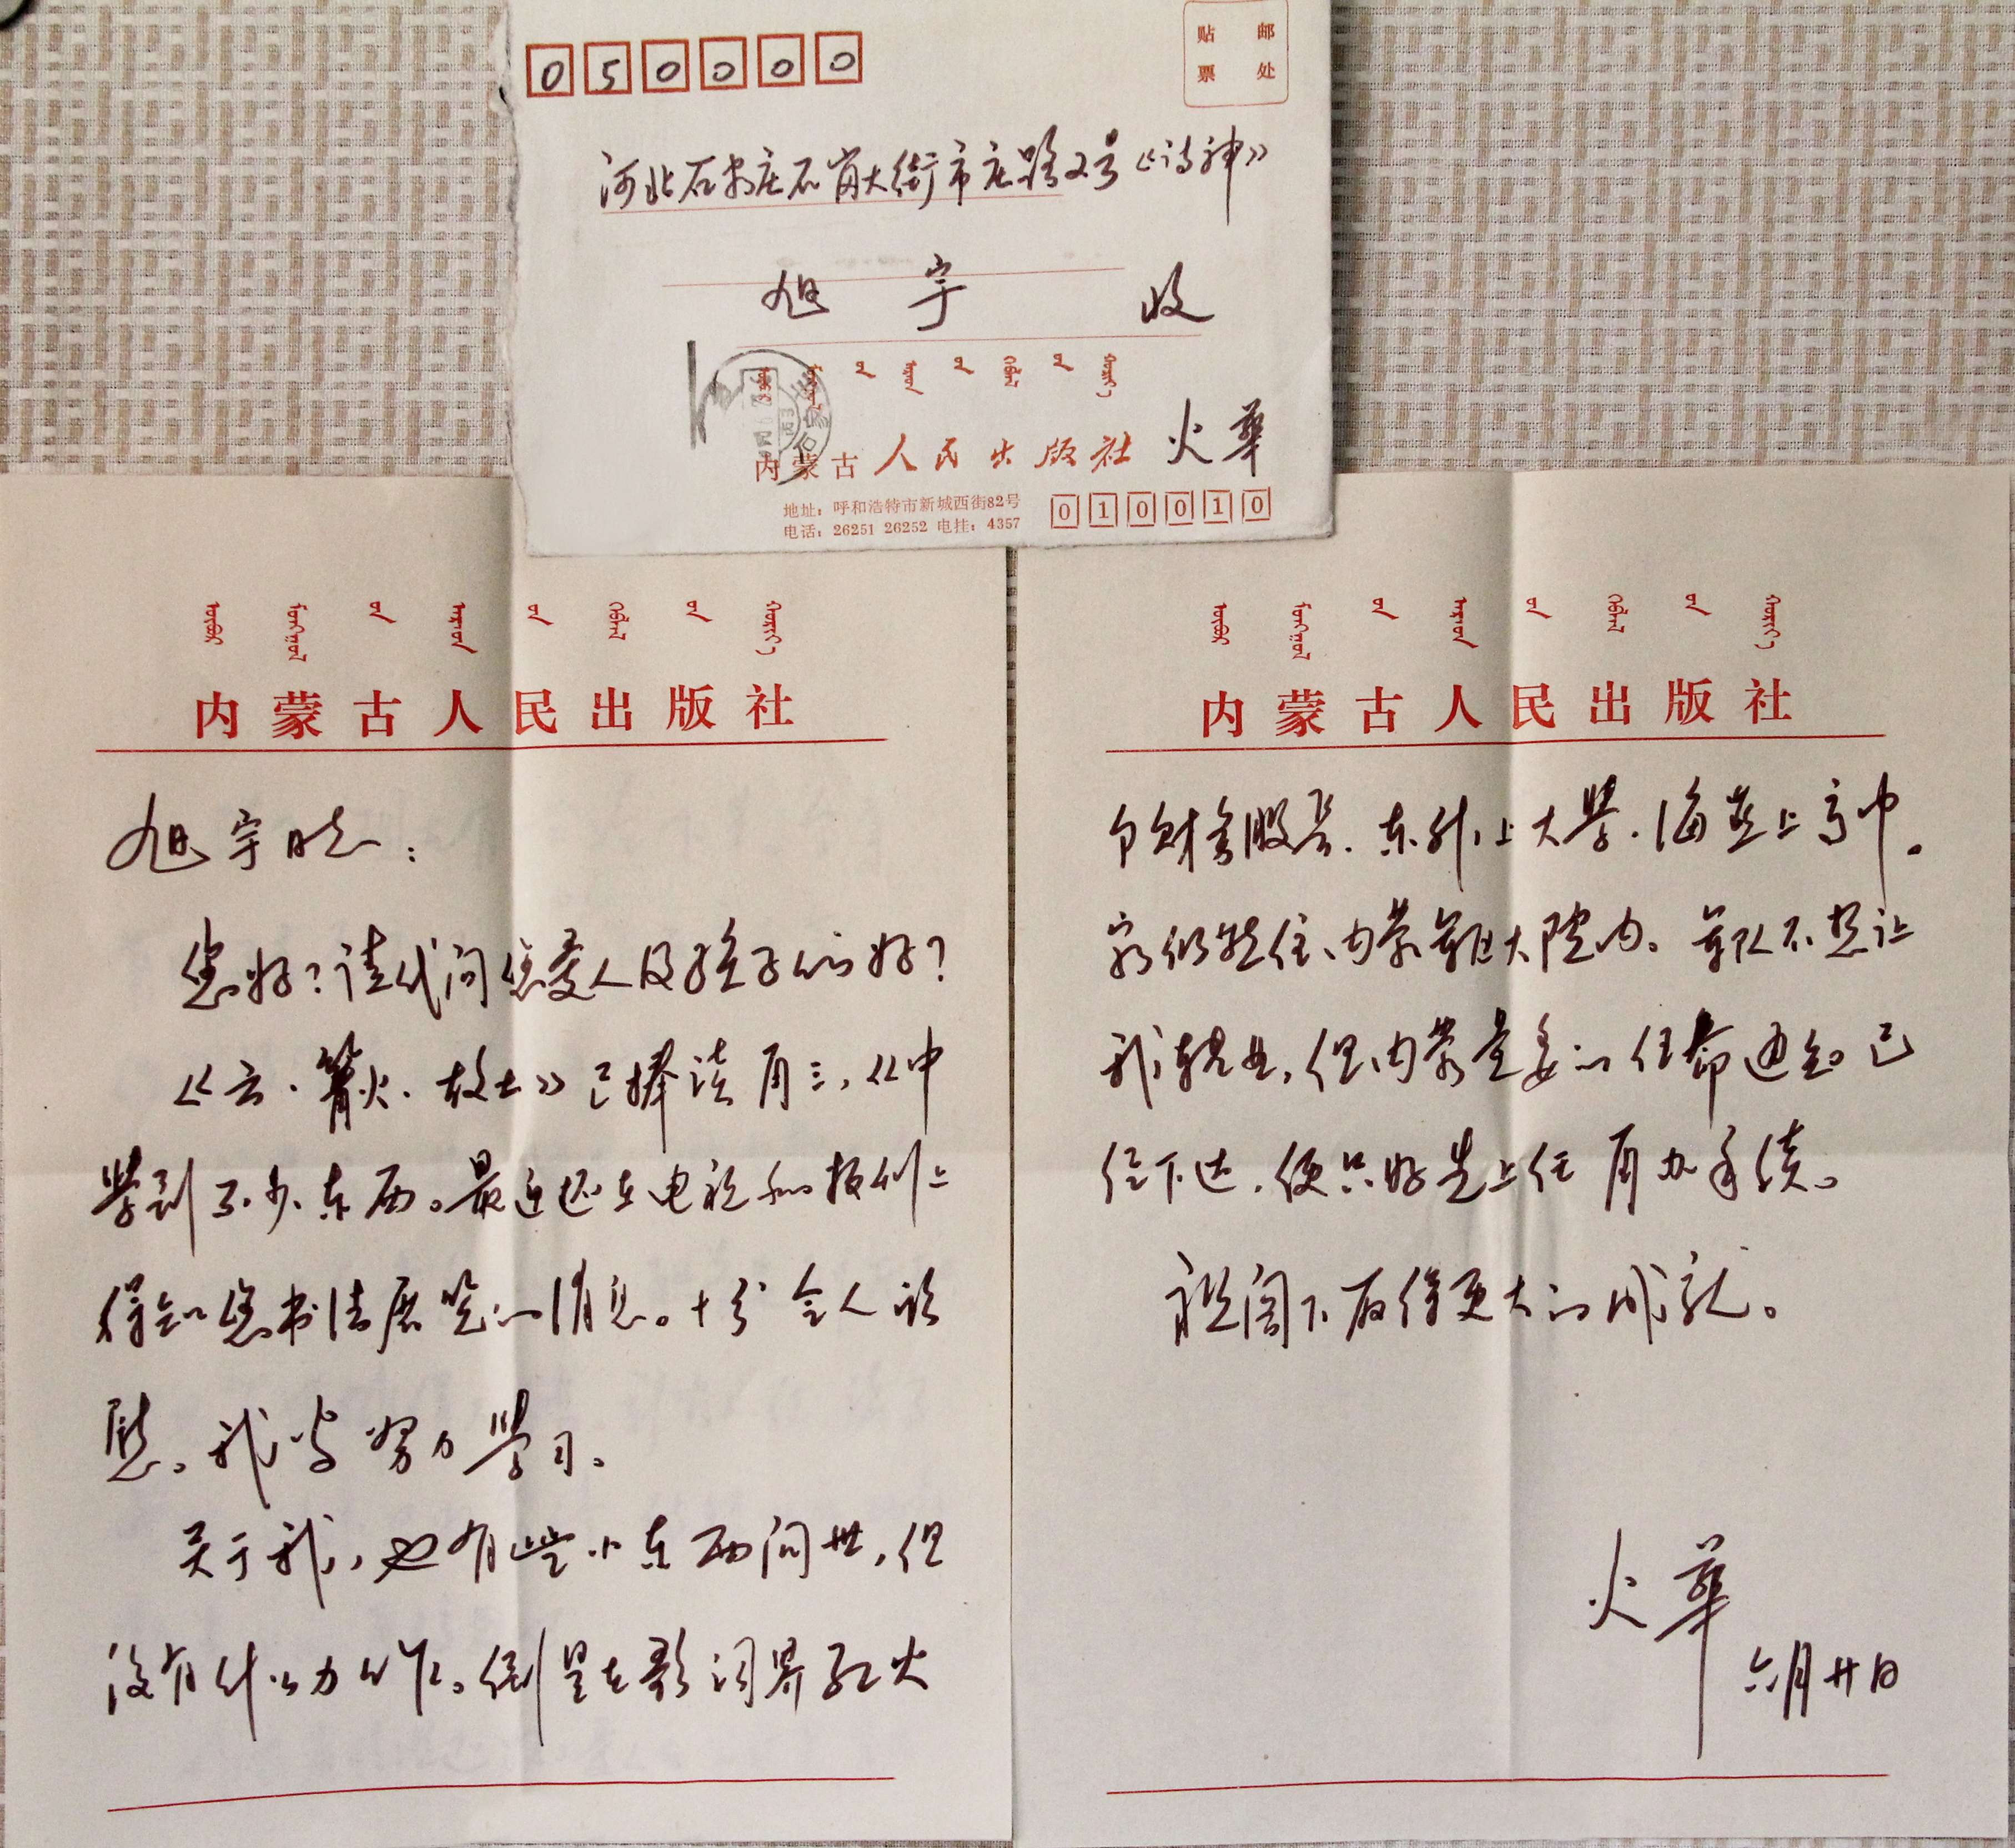 050000
贴 邮
票 处
河北石家庄石岗大街市庄路2号《诗神》
旭宇 收
内蒙古人民出版社 火华
地址：呼和浩特市新城西街82号
电话：26251 26252 电挂：4357
010010
内蒙古人民出版社
旭宇
您好？请代问您爱人及孩子们好？
《云·篝火·故土》已捧读再三，从中
学到不少东西。最近还在电视和报刊上
得知您书法展览的消息。十分令人欣
慰。我当努力学习。
关于我，也有些小东西问世，但
没有什么力作。倒是在歌词界红火
内蒙古人民出版社
东升上大学．海燕上高中。
家仍然住内蒙军区大院内。军队不想让
我转业，但内蒙党委的任命通知已
经下达，便只好先上任再办手续。
祝阁下取得更大的成就。
火华
六月廿日